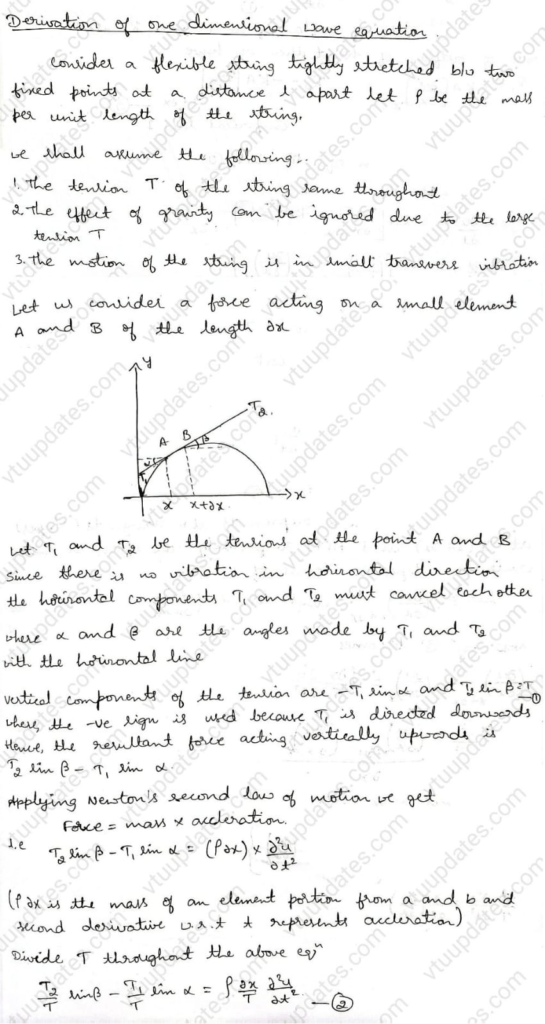 Derivation of one dimensional wave equation.
Consider a flexible string tightly stretched b/w two
fixed points at a distance l apart let ρ be the mass
per unit length of the string.
we shall assume the following:-
1. The tension T of the string same throughout
2. The effect of gravity can be ignored due to the large
tension T
3. The motion of the string is in small transvers vibration
Let us consider a force acting on a small element
A and B of the length ∂x
y
T₂
A B β
α
T₁
x x+∂x x
Let T₁ and T₂ be the tensions at the point A and B
Since there is no vibration in horizontal direction
the horizontal components T₁ and T₂ must cancel each other
where α and β are the angles made by T₁ and T₂
with the horizontal line
Vertical components of the tension are -T₁ sin α and T₂ sin β = T ①
where, the -ve sign is used because T₁ is directed downwards
Hence, the resultant force acting vertically upwards is
T₂ sin β - T₁ sin α.
Applying Newton's second law of motion we get
Force = mass x accleration.
i.e T₂ sin β - T₁ sin α = (ρ∂x) x ∂²u/∂t²
(ρ∂x is the mass of an element portion from a and b and
second derivative w.r.t t represents accleration)
Divide T throughout the above eqⁿ
T₂/T sinβ - T₁/T sin α = ρ ∂x/T ∂²u/∂t² — ②
vtuupdates.com